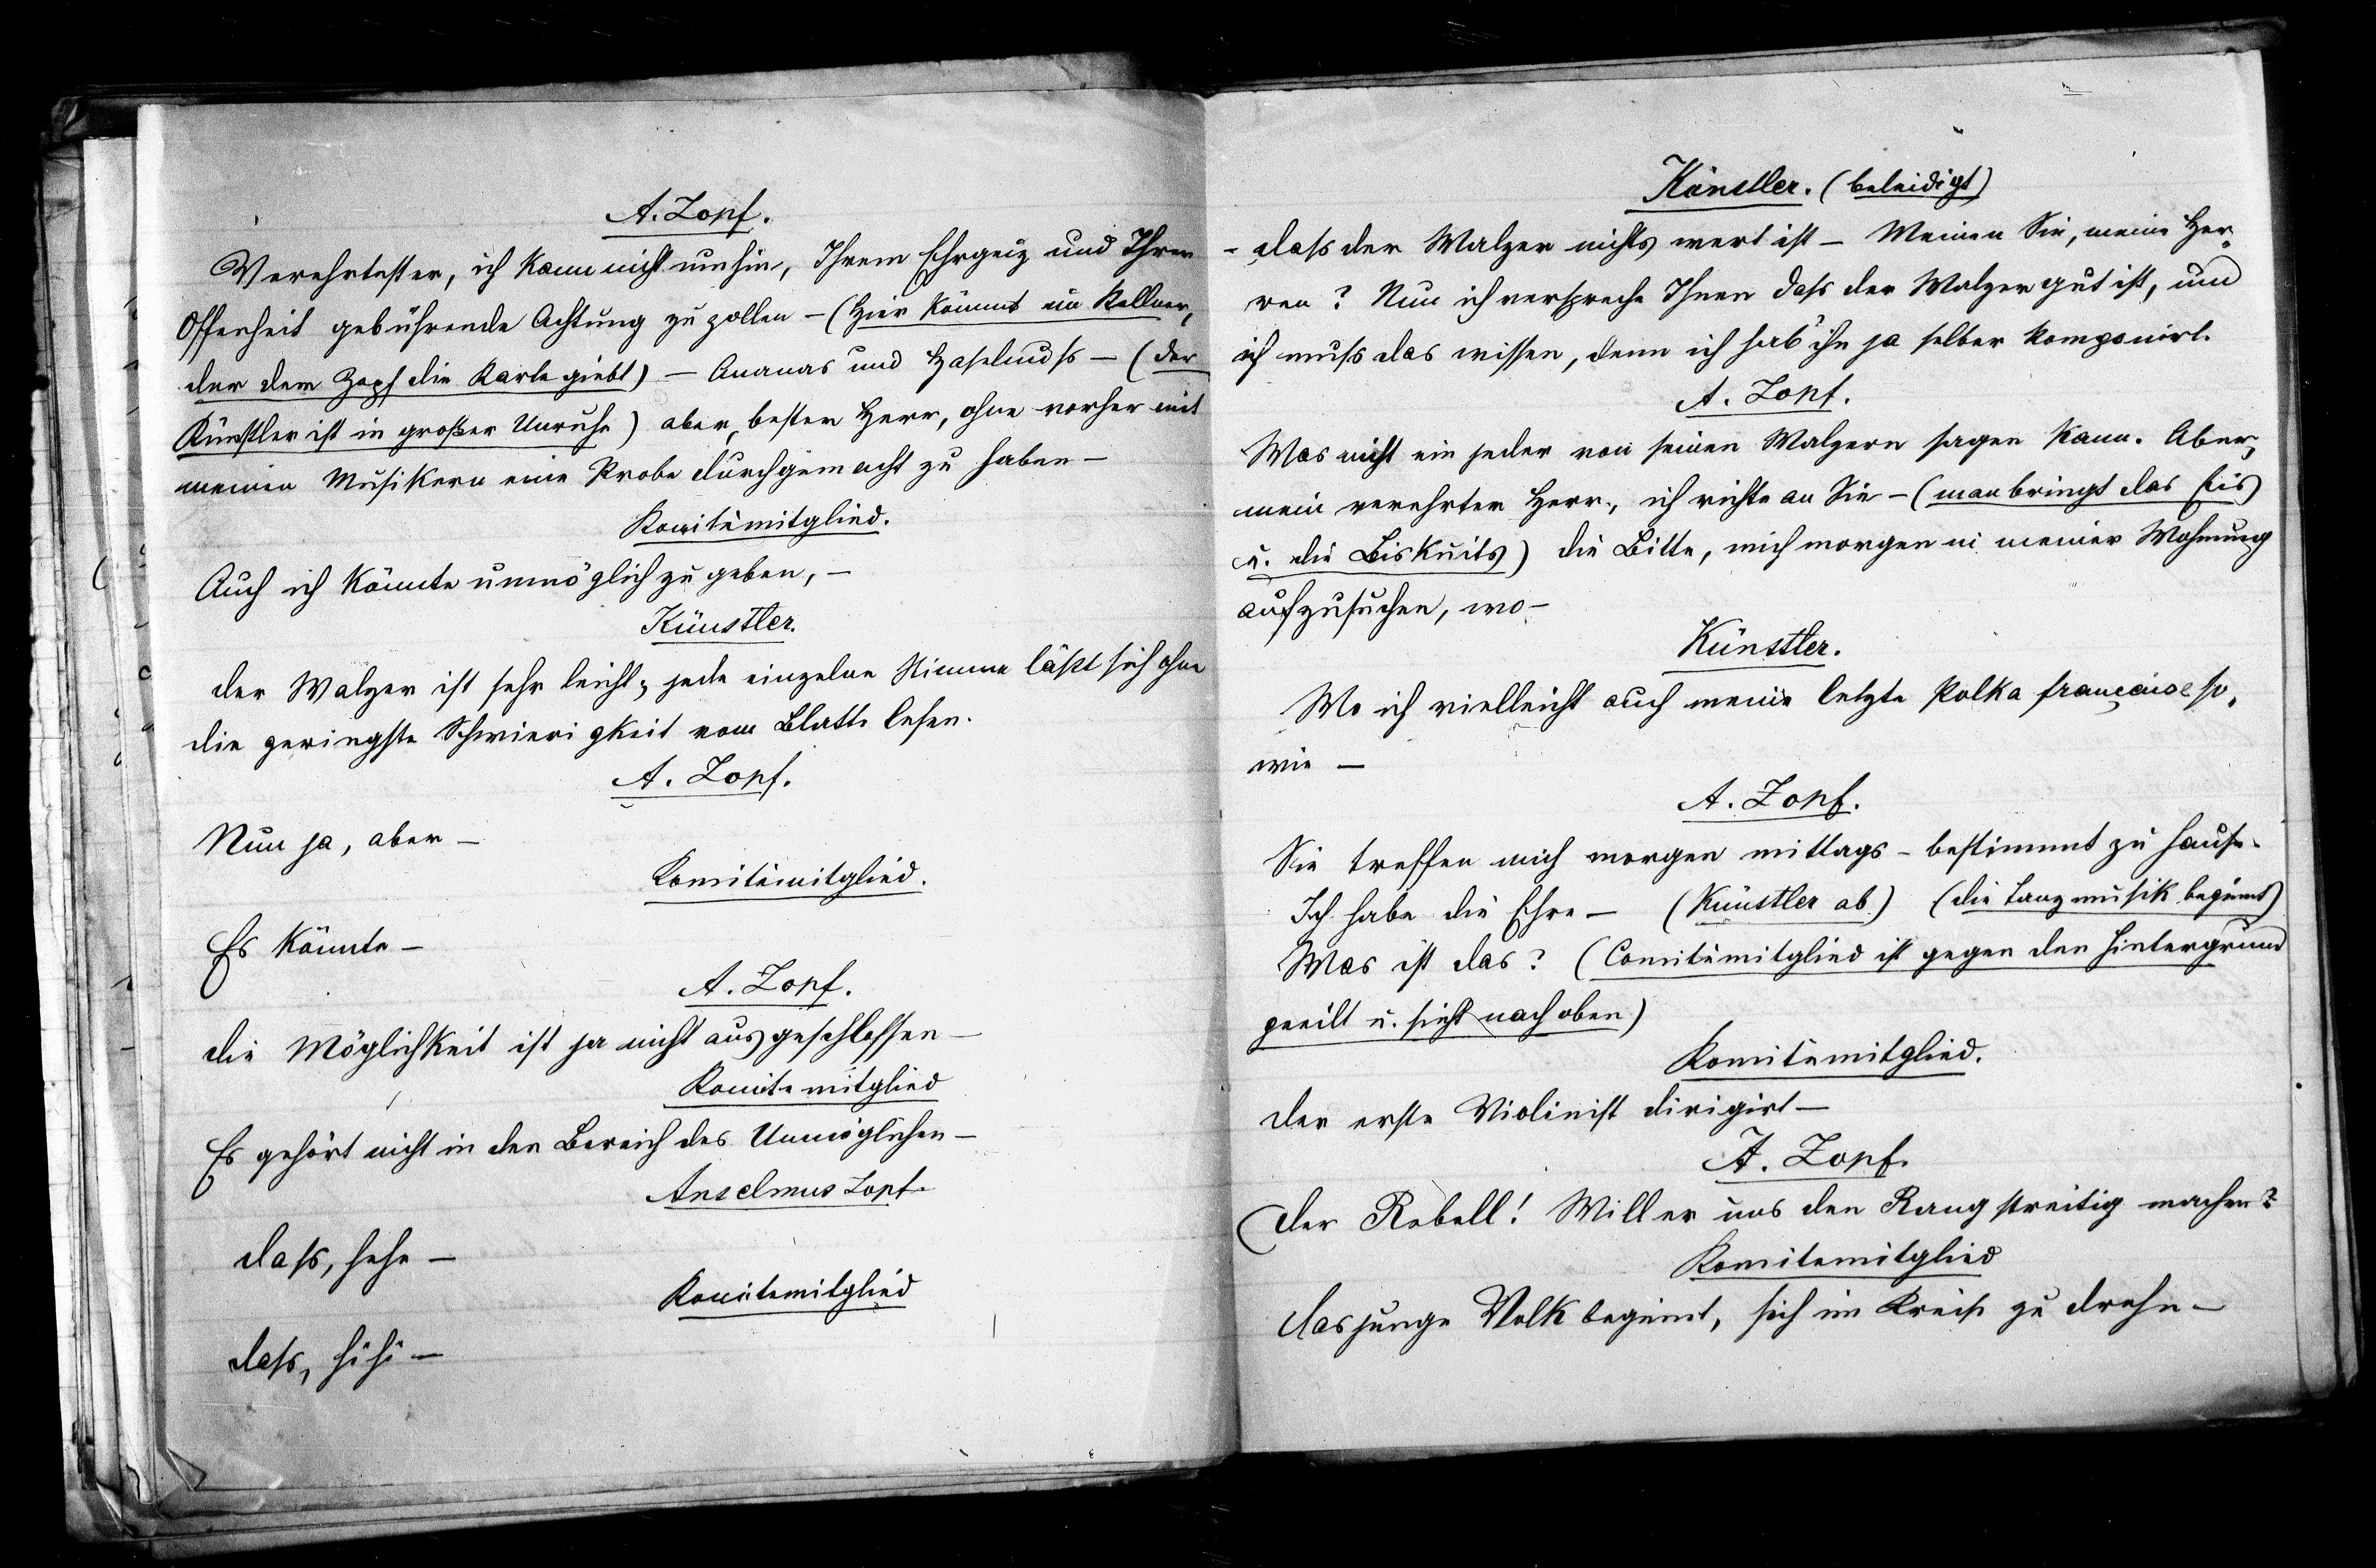 A. Zopf.
Verehrtester, ich kann nicht umhin, Ihrem Ehrgeiz und Ihrer
Offenheit gebührende Achtung zu zollen – (Hier kömmt ein Kellner,
der dem Zopf die Karte giebt) – Ananas und Haselnuß – (der
Künstler ist in großer Unruhe) aber, bester Herr, ohne vorher mit
meinen Musikern eine Probe durchgemacht zu haben –
Komitémitglied.
Auch ich könnte unmöglich zugeben, –
Künstler.
der Walzer ist sehr leicht; jede einzelne Stimme läßt sich ohne
die geringste Schwierigkeit vom Blatte lesen.
A. Zopf.
Nun ja, aber –
Komitémitglied.
Es könnte –
A. Zopf.
die Möglichkeit ist ja nicht ausgeschlossen –
Komitemitglied
Es gehört nicht in den Bereich des Unmöglichen –
Anselmus Zopf.
daß, hehe –
Komitemitglied
daß, hihi –
Künstler. (beleidigt)
– daß der Walzer nichts wert ist – Meinen Sie, meine Her-
ren? Nun ich verspreche Ihnen daß der Walzer gut ist, und
ich muß das wissen, denn ich hab' ihn ja selber komponirt.
A. Zopf.
Was nicht ein jeder von seinen Walzern sagen kann. Aber,
mein verehrter Herr, ich richte an Sie – (man bringt das Eis
u. die Biskuits) die Bitte, mich morgen in meiner Wohnung
aufzusuchen, wo –
Künstler.
Wo ich vielleicht auch meine letzte Polka française so-
wie –
A. Zopf.
Sie treffen mich morgen mittags – bestimmt zu Hause.
Ich habe die Ehre – (Künstler ab) (die Tanzmusik beginnt)
Was ist das? (Comitémitglied ist gegen den Hintergrund
geeilt u. sieht nach oben)
Komitémitglied.
der erste Violinist dirigirt –
A. Zopf.
der Rebell! Will er uns den Rang streitig machen?
Komitemitglied
das junge Volk beginnt, sich im Kreise zu drehn –